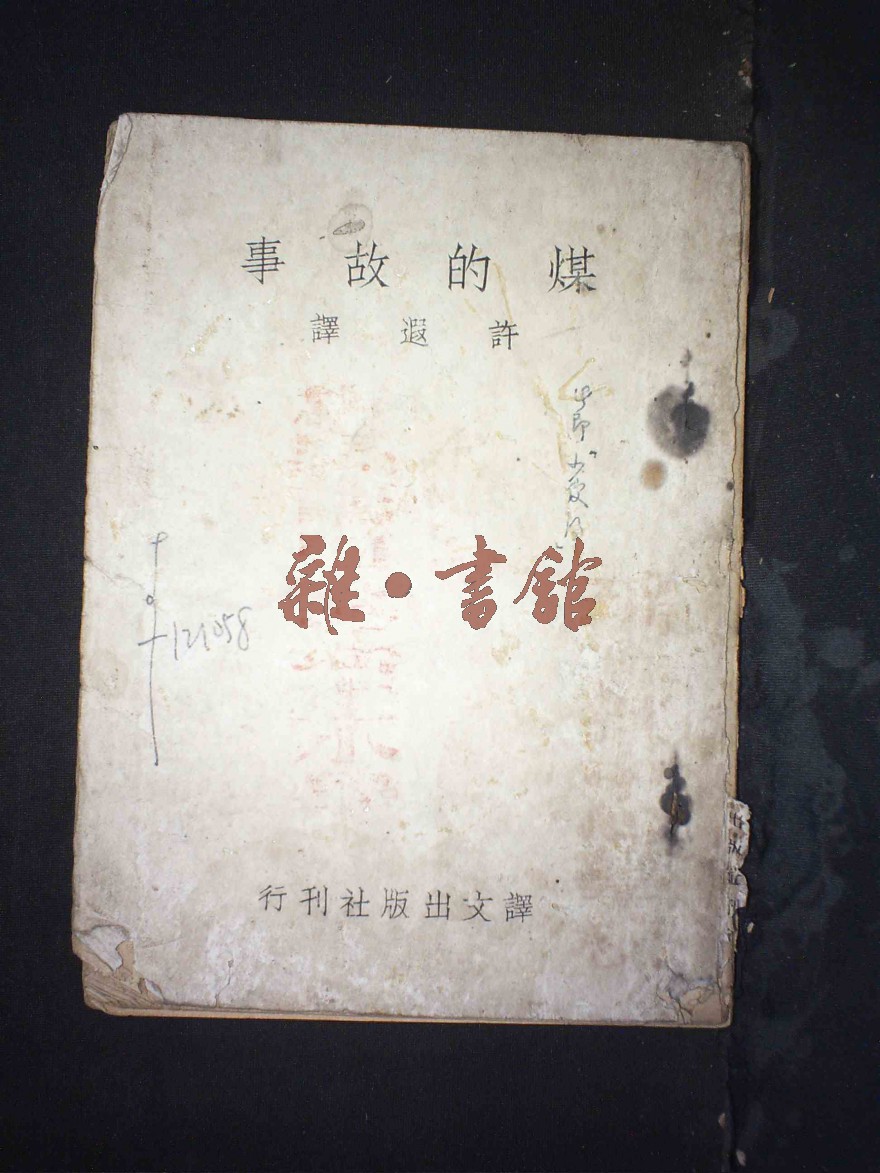 煤的故事
許遐譯
雜·書館
121058
譯文出版社刊行